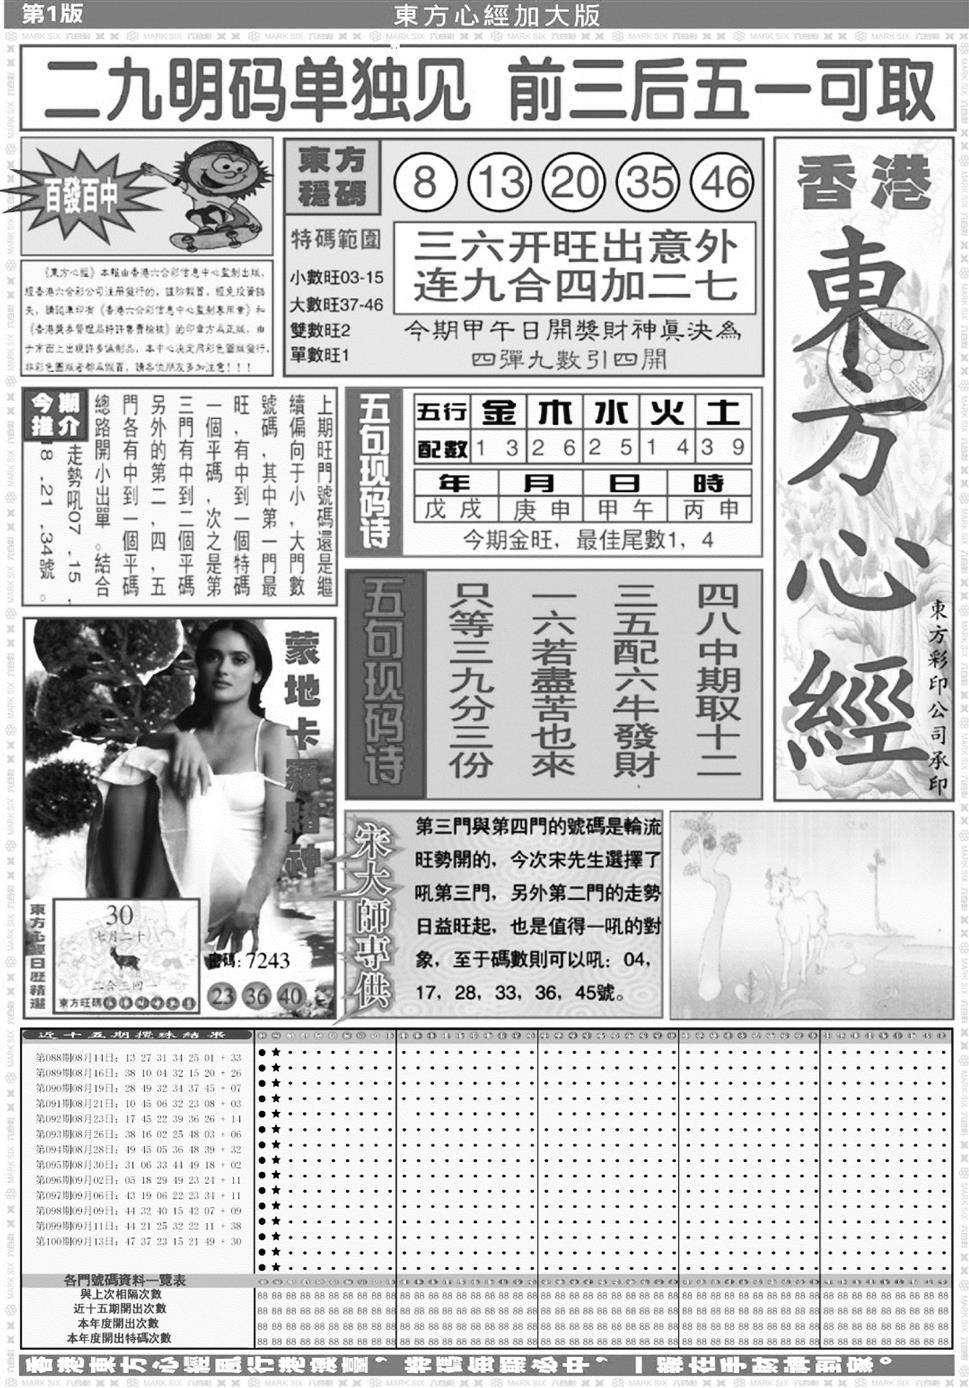 第1版
東方心經加大版
二九明码单独见 前三后五一可取
百發百中
《東方心經》本報由香港六合彩信息中心監制出版，
經香港六合彩公司注册發行的，謹防假冒，經免投資錯
失，請認準印有《香港六合彩信息中心監制專用章》和
于市面上出現許多偽制品，本中心决定用彩色圖版發行，
非彩色圖版者都爲假冒，請各位朋友多加注意！！！
東方
穩碼
8 13 20 35 46
特碼範圍
小數旺03-15
大數旺37-46
雙數旺2
單數旺1
三六开旺出意外
连九合四加二七
今期甲午日開獎財神眞決為
四彈九數引四開
香港
東方心經
東方彩印公司承印
今期
推介
上期旺門號碼還是繼
續偏向于小，大門數
號碼，其中第一門最
旺，有中到一個特碼
一個平碼，次之是第
三門有中到二個平碼
另外的第二，四，五
門各有中到一個平碼
總路開小出單。結合
走勢吼07，15，
18，21，34號。
五句现码诗
五行 金 木 水 火 土
配數 1 3 2 6 2 5 1 4 3 9
年 月 日 時
戊戌 庚申 甲午 丙申
今期金旺，最佳尾數1，4
五句现码诗
四八中期取十二
三五配六牛發財
一六若盡苦也來
只等三九分三份
蒙地卡羅賭神
東方心經日歷精選
30
七月二十八
二合三同一
東方旺碼
密碼:7243
23 36 40
宋大師專供
第三門與第四門的號碼是輪流
旺勢開的，今次宋先生選擇了
吼第三門，另外第二門的走勢
日益旺起，也是值得一吼的對
象，至于碼數則可以吼：04，
17，28，33，36，45號。
近十五期攪珠結果
第088期08月14日：13 27 31 34 25 01 + 33
第089期08月16日：38 10 04 32 15 20 + 26
第090期08月19日：28 49 32 34 37 45 + 07
第091期08月21日：10 45 06 32 23 08 + 03
第092期08月23日：17 45 22 39 36 26 + 14
第093期08月26日：38 16 02 25 48 03 + 06
第094期08月28日：49 45 05 36 48 39 + 32
第095期08月30日：31 06 33 44 49 18 + 02
第096期09月02日：05 18 29 49 23 24 + 11
第097期09月06日：43 19 06 22 23 34 + 11
第098期09月09日：44 32 40 15 42 07 + 09
第099期09月11日：44 21 25 32 22 11 + 38
第100期09月13日：47 37 23 15 21 49 + 30
各門號碼資料一覽表
與上次相隔次數
近十五期開出次數
本年度開出次數
本年度開出特碼次數